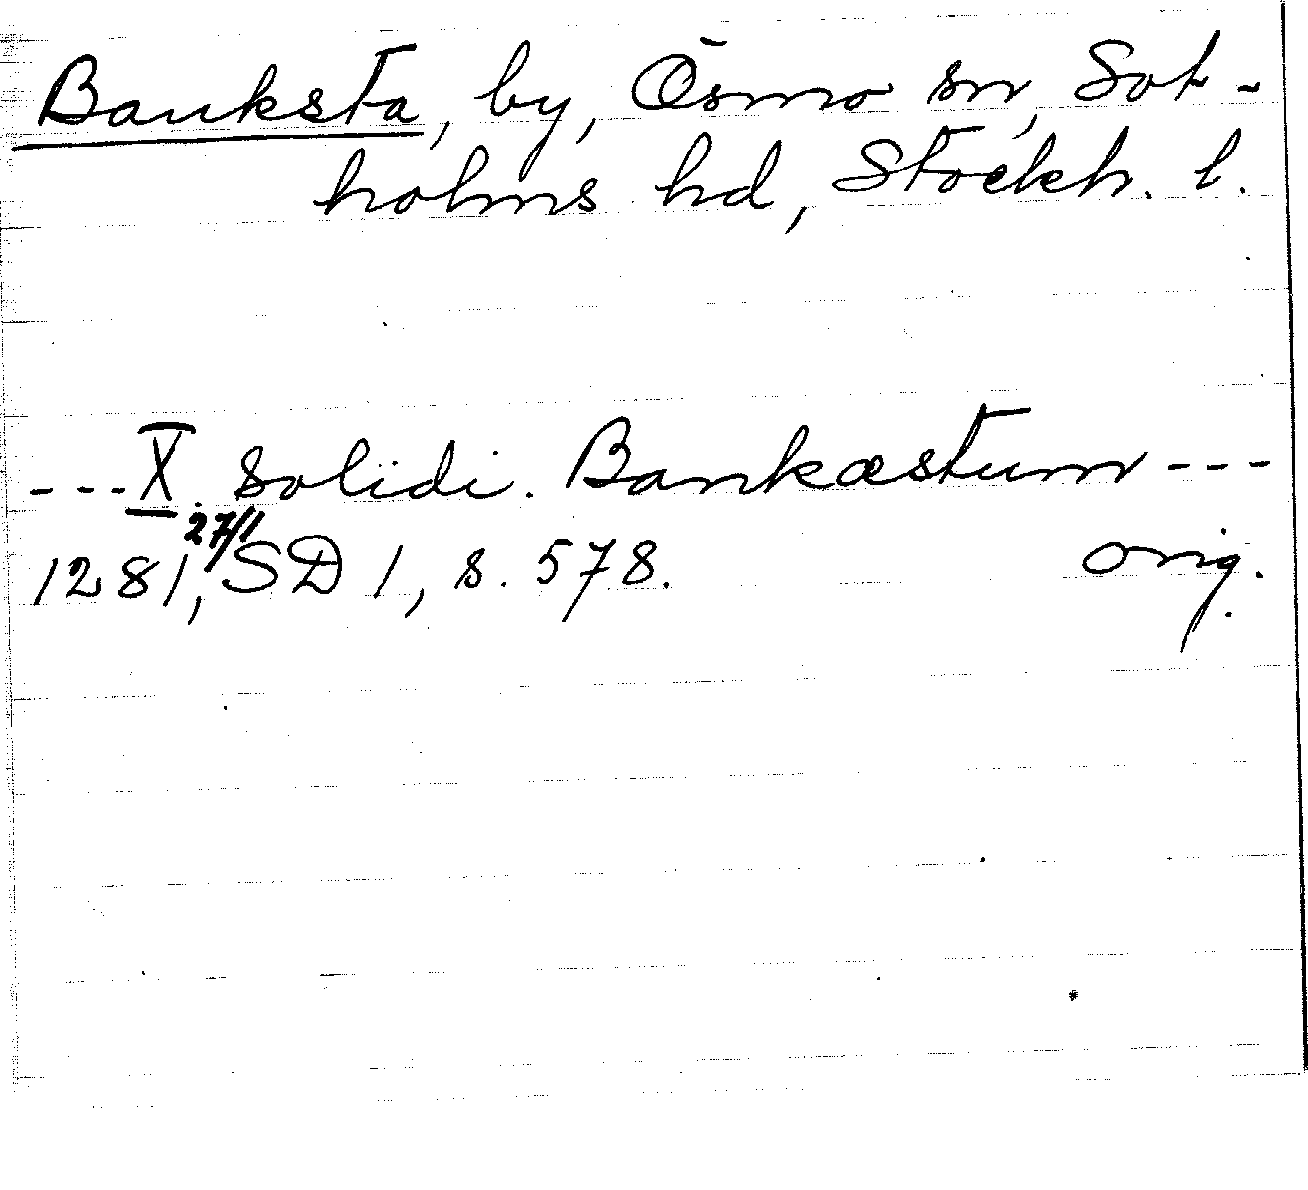 Banksta, by, Ösmo sn, Sot-
holms hd, Stockh. l.
---X. solidi. Bankæstum---
1281, 27/1 SD 1, s. 578. orig.